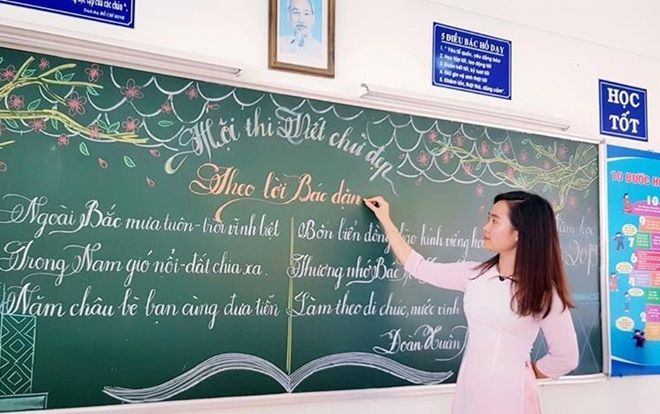 học tập của các cháu".
Thích thư, HỒ CHÍ MINH
5 ĐIỀU BÁC HỒ DẠY
1. Yêu tổ quốc, yêu đồng bào
2. Học tập tốt, lao động tốt
3. Đoàn kết tốt, kỷ luật tốt
4. Giữ gìn vệ sinh thật tốt
5. Khiêm tốn, thật thà, dũng cảm".
HỌC
TỐT
10 BƯỚC
Hội thi Viết chữ đẹp
Theo lời Bác dặn
Năm học
Ngoài Bắc mưa tuôn - trời vĩnh biệt
Trong Nam gió nổi - đất chia xa.
Năm châu bè bạn cùng đưa tiễn
Bốn biển đồng bào kính viếng
Thương nhớ Bác
Làm theo di chúc, nước vinh
Đoàn Xuân